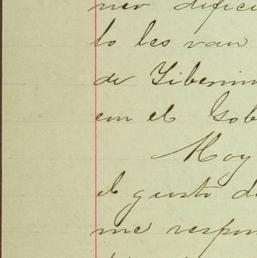 ner dificu
lo les van
de Liberia
con el Gob
Hoy
el gusto d
me respon